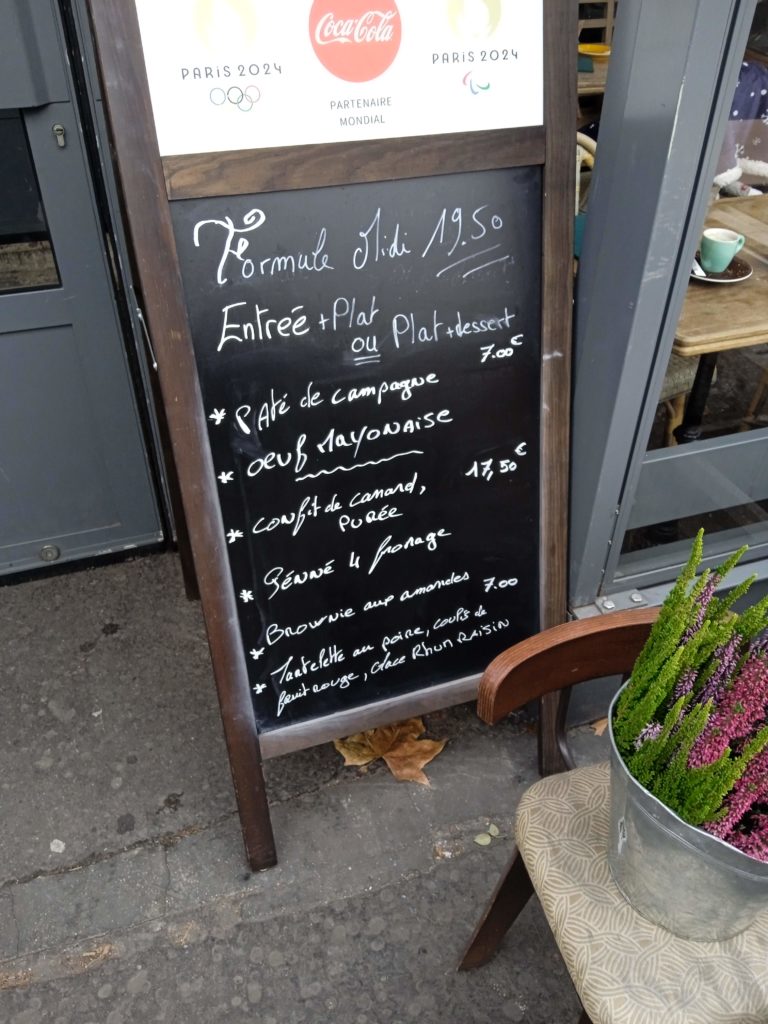 Coca-Cola
PARIS 2024
PARIS 2024
PARTENAIRE
MONDIAL
Formule Midi 19.50
Entreé + Plat
ou Plat + dessert
7.00€
* Paté de campagne
* oeuf Mayonaise
17,50€
* confit de canard,
purée
* Pénné 4 fromage
7.00
* Brownie aux amandes
* Tartelette au poire, coulis de
fruit rouge, glace Rhum Raisin